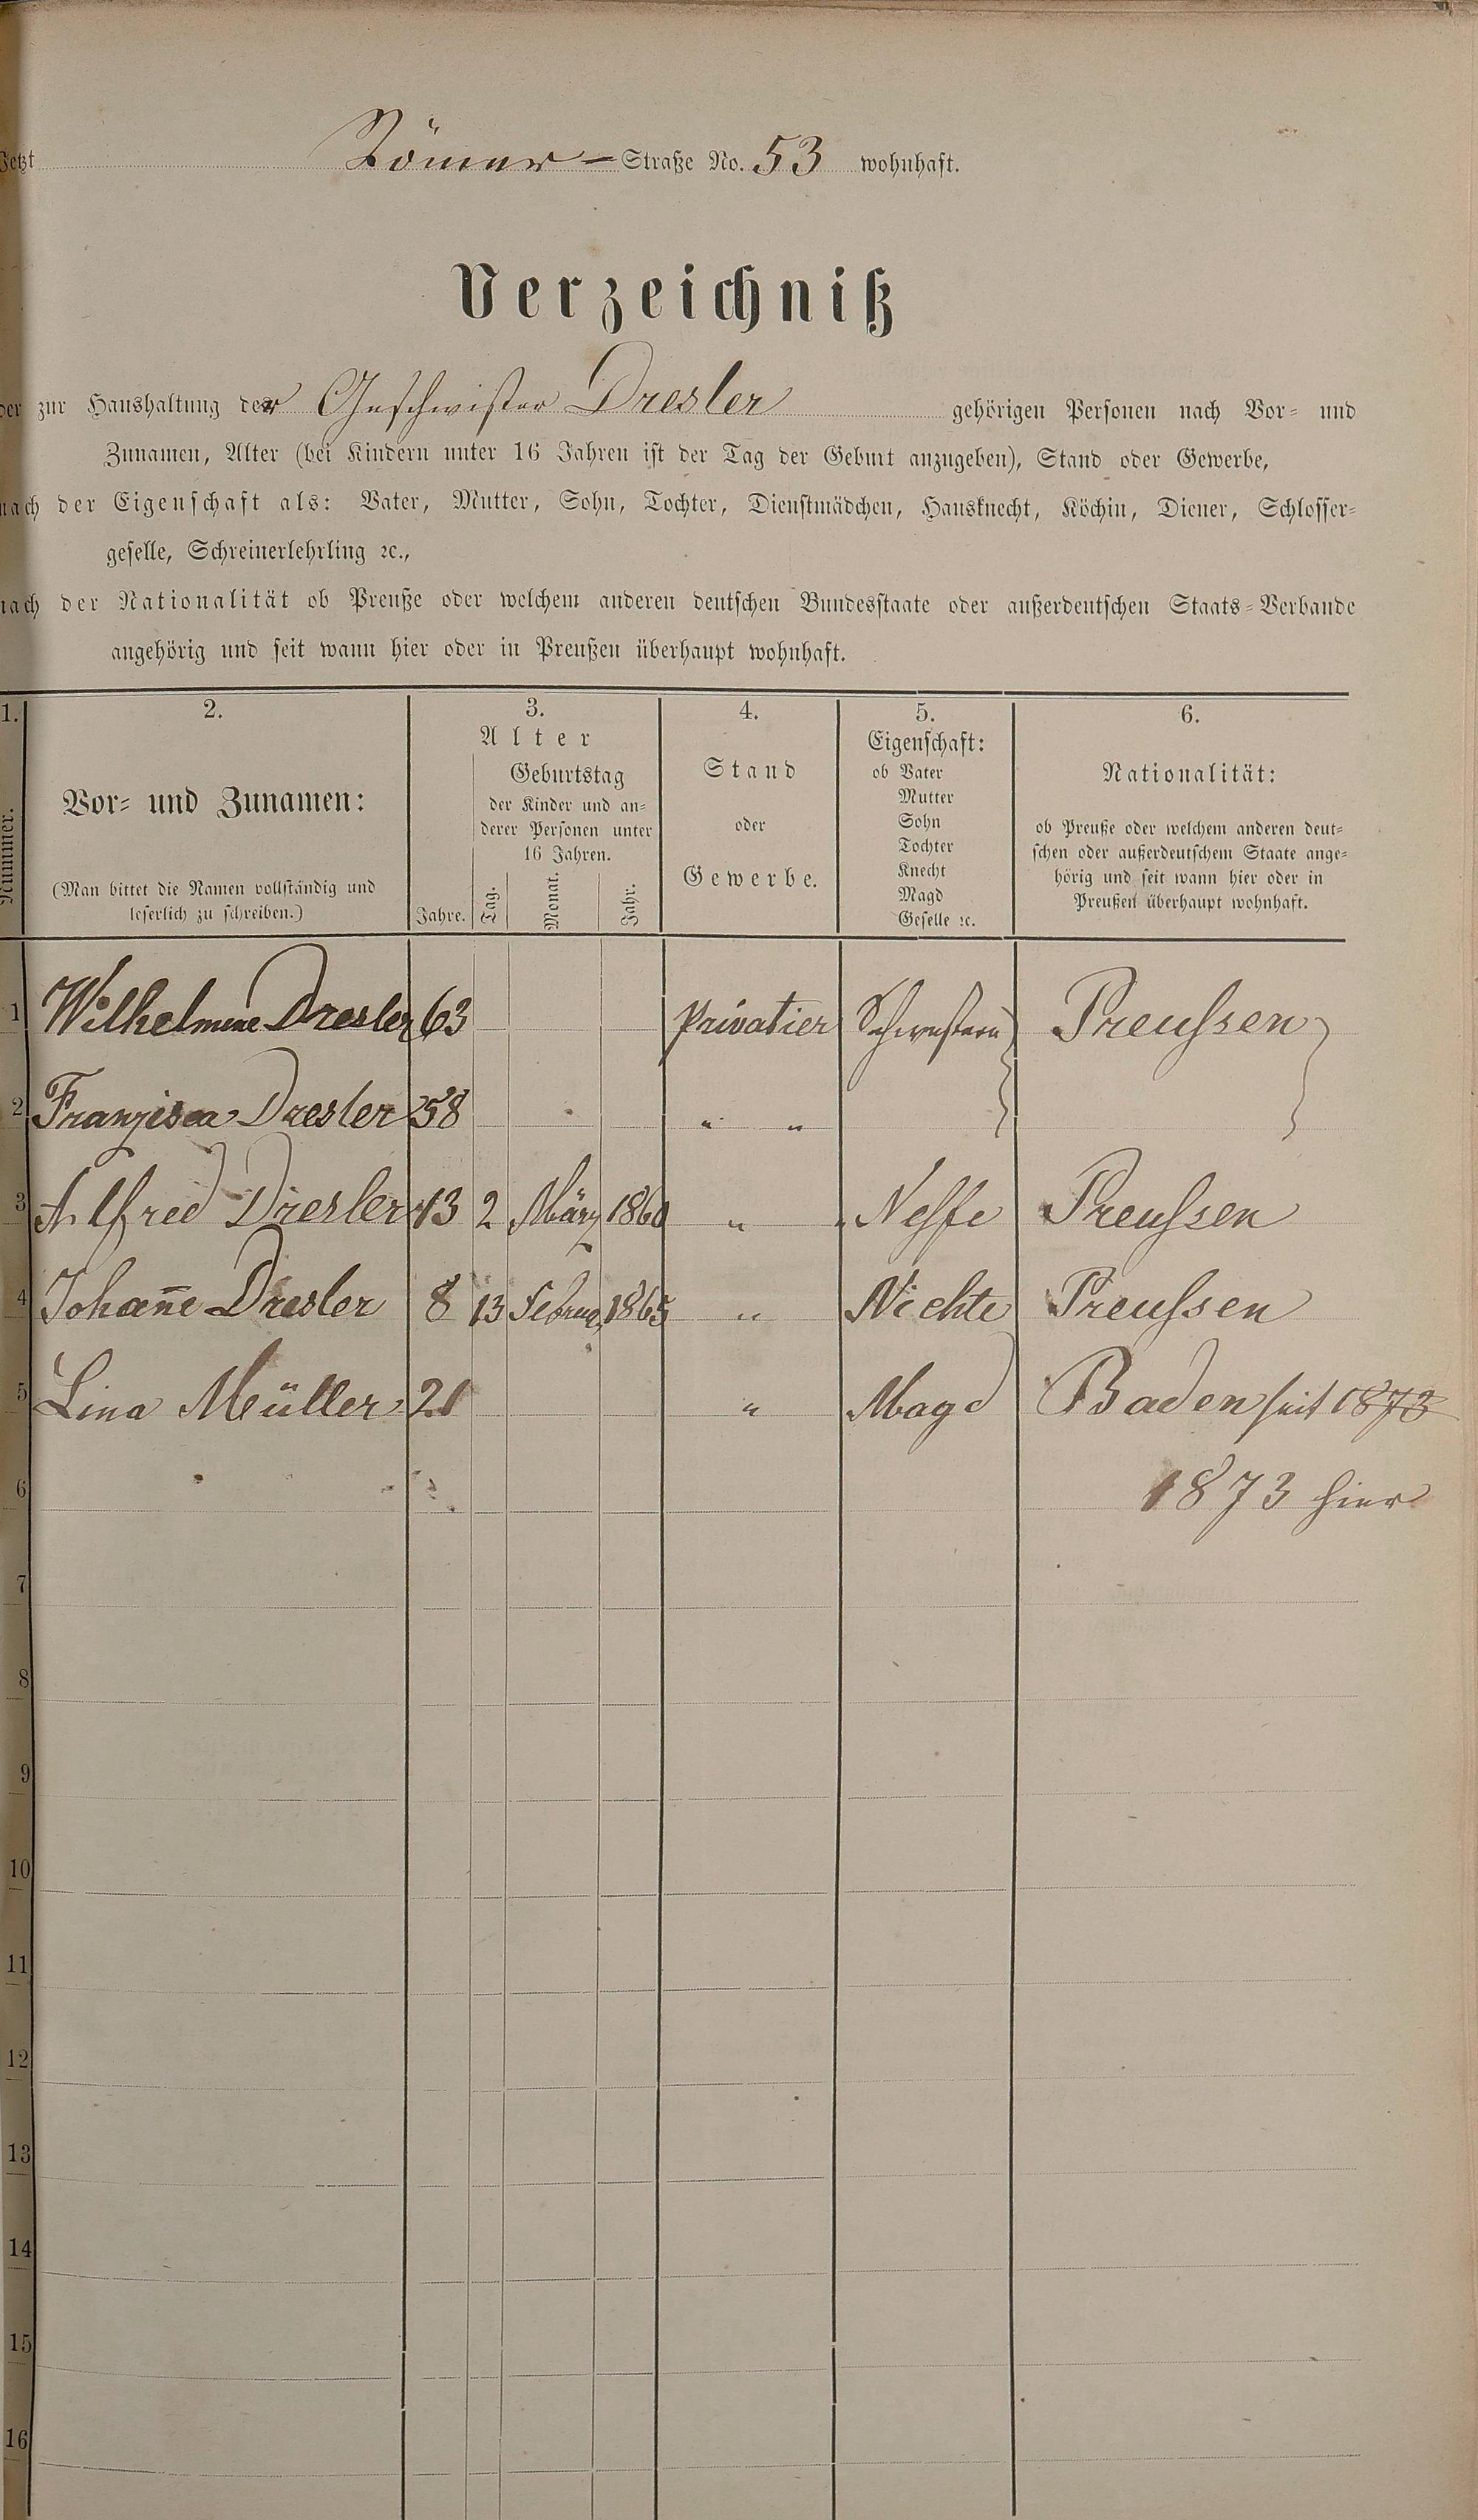 Jetzt Römer-Straße No. 53 wohnhaft.
Verzeichniß
der zur Haushaltung der Geschwister Dresler gehörigen Personen nach Vor- und
Zunamen, Alter (bei Kindern unter 16 Jahren ist der Tag der Geburt anzugeben), Stand oder Gewerbe,
nach der Eigenschaft als: Vater, Mutter, Sohn, Tochter, Dienstmädchen, Hausknecht, Köchin, Diener, Schlosser-
geselle, Schreinerlehrling ꝛc.,
nach der Nationalität ob Preuße oder welchem anderen deutschen Bundesstaate oder außerdeutschen Staats-Verbande
angehörig und seit wann hier oder in Preußen überhaupt wohnhaft.
1.
Nummer.
2.
Vor- und Zunamen:
(Man bittet die Namen vollständig und
leserlich zu schreiben.)
3.
Alter
Jahre.
Geburtstag
der Kinder und an-
derer Personen unter
16 Jahren.
Tag. Monat. Jahr.
4.
Stand
oder
Gewerbe.
5.
Eigenschaft:
ob Vater
Mutter
Sohn
Tochter
Knecht
Magd
Geselle ꝛc.
6.
Nationalität:
ob Preuße oder welchem anderen deut-
schen oder außerdeutschem Staate ange-
hörig und seit wann hier oder in
Preußen überhaupt wohnhaft.
1 Wilhelmine Dresler 63 Privatier Schwestern Preußen
2 Franzisca Dresler 58 " "
3 Alfred Dresler 13 2 März 1860 " Neffe Preußen
4 Johan̄e Dresler 8 13 Februar 1865 " Nichte Preußen
5 Lina Müller 21 " Magd Baden seit 1873
6 1873 hier
7
8
9
10
11
12
13
14
15
16